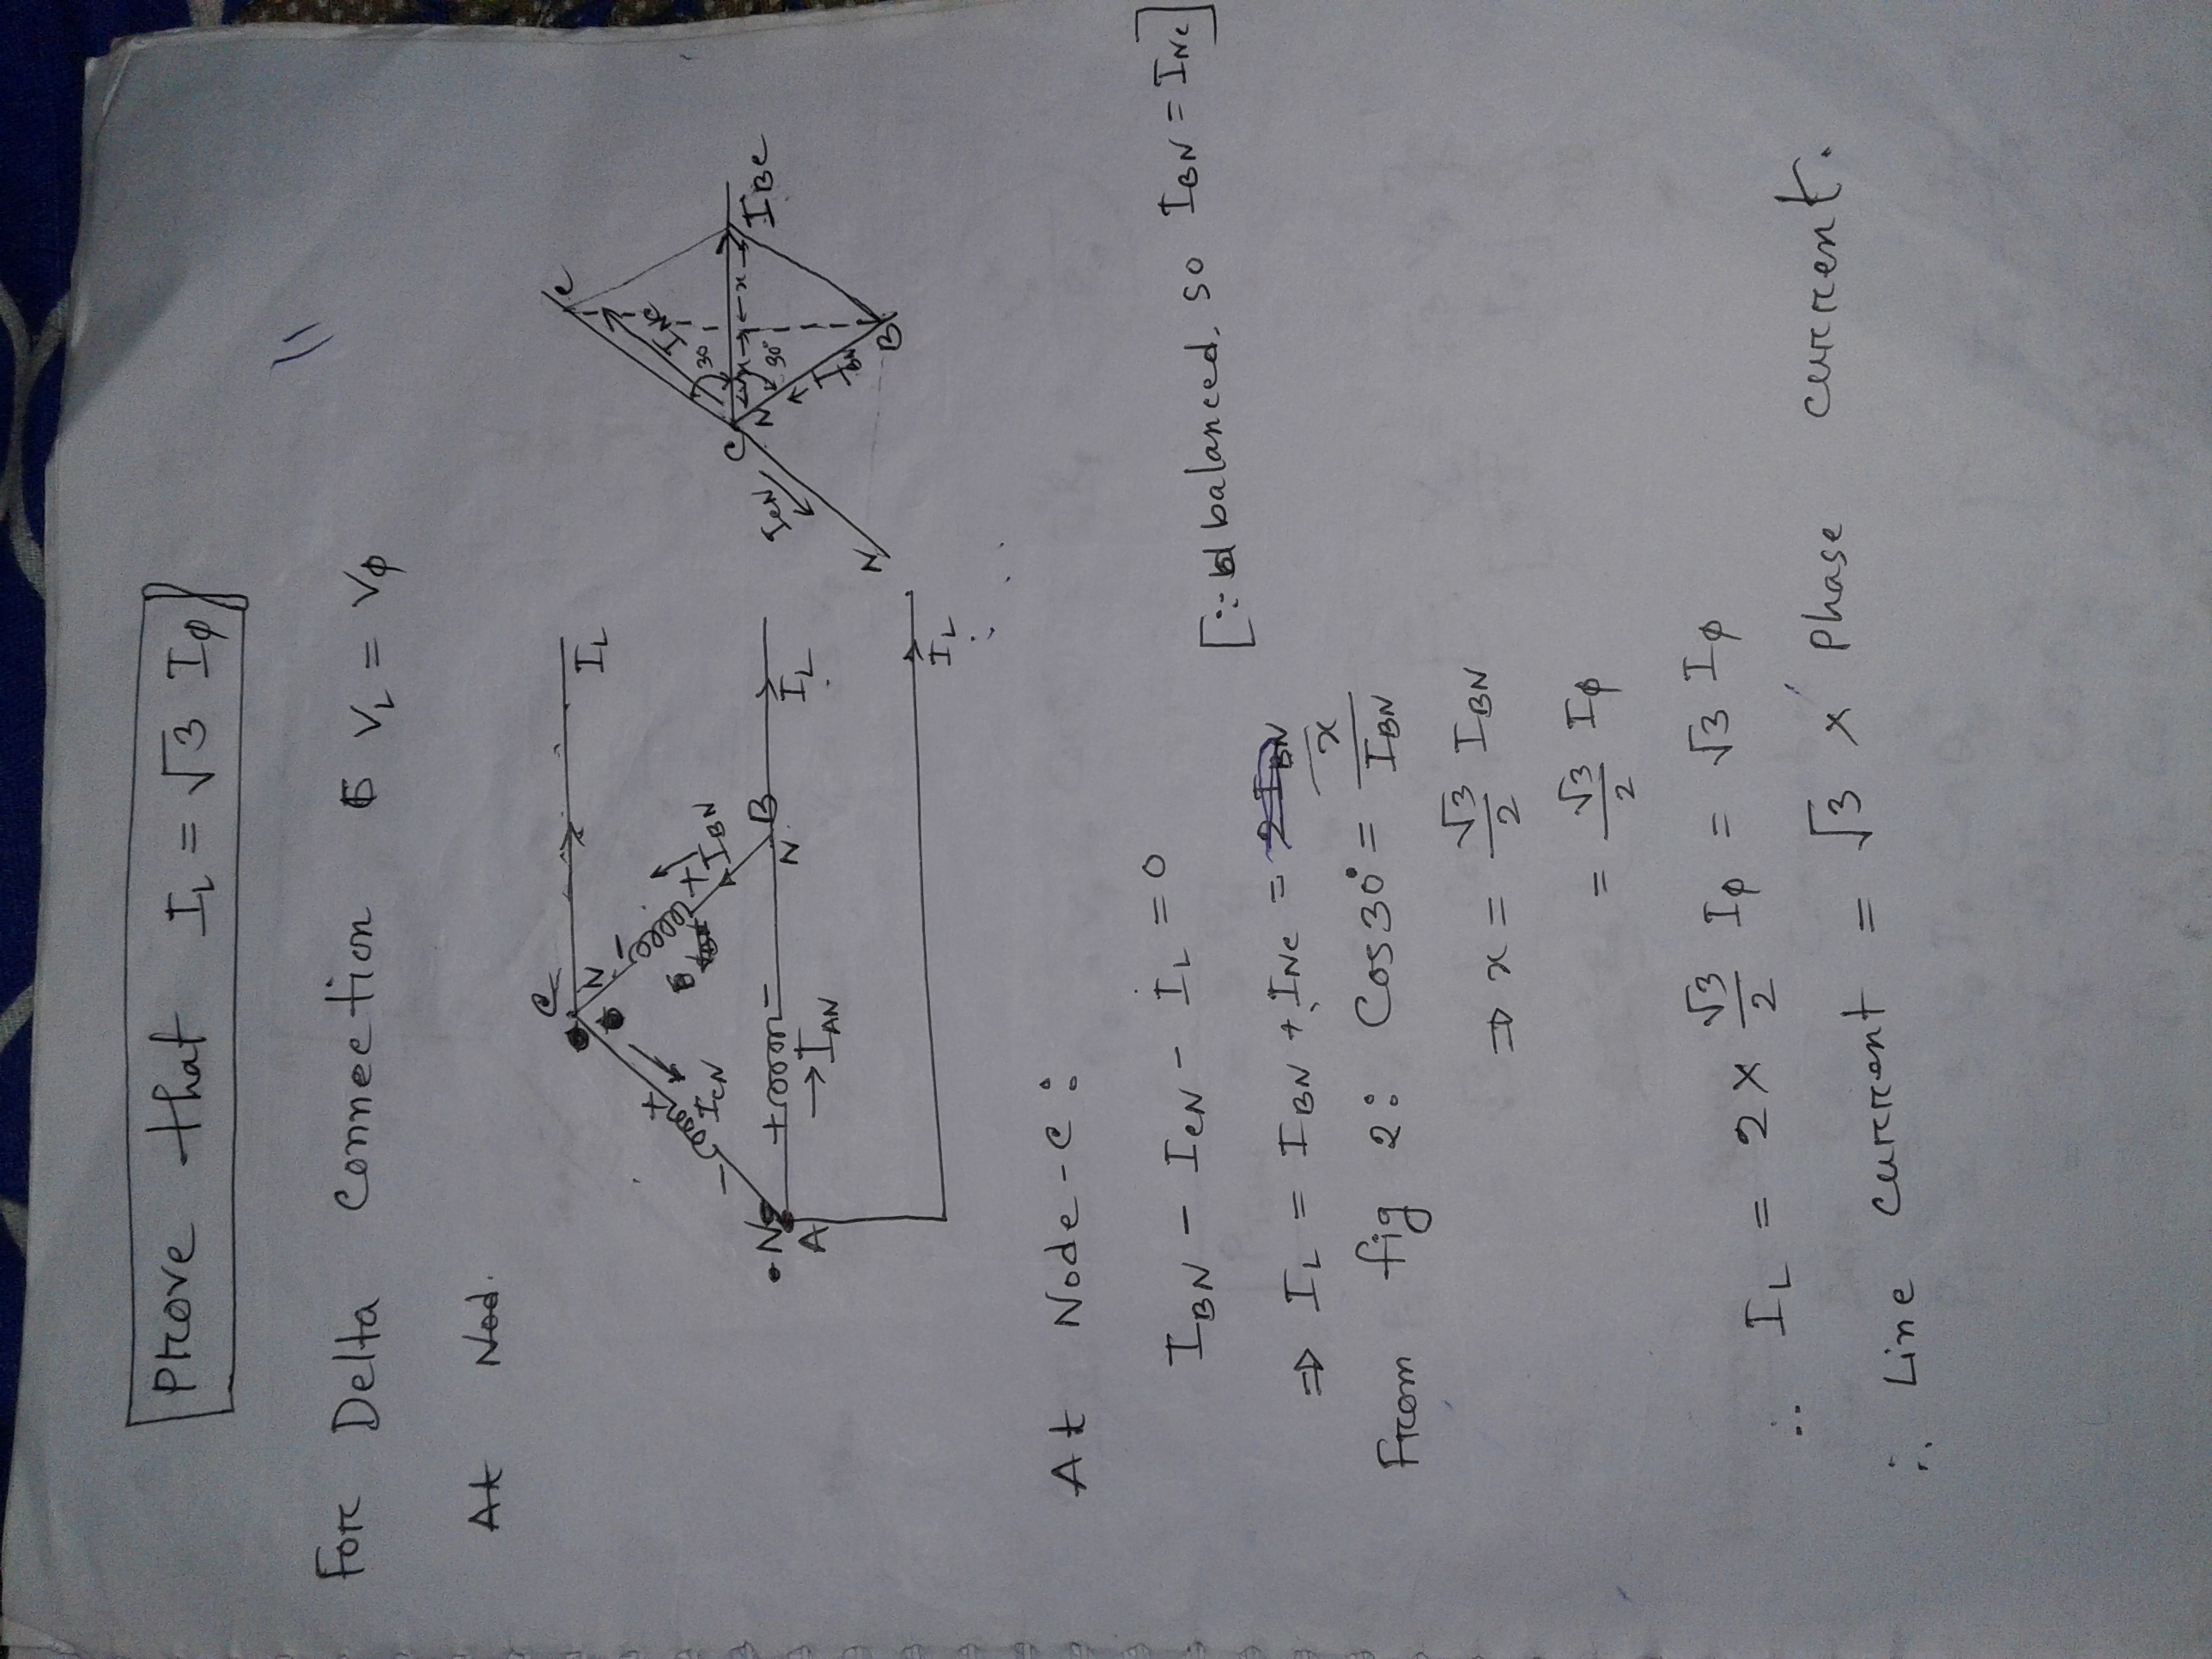 Prove that I_L = √3 Iφ
For Delta Connection V_L = Vφ
At Nod.
C
N
I_L
+
−
I_CN
−
+
I_BN
N
A
+ −
I_AN
N
B
I_L
I_L
C
I_NC
30
C
N
x
x
30°
I_BC
I_CN
I_BN
N
B
At Node-C:
I_BN − I_CN − I_L = 0
[∵ balanced, so I_BN = I_NC]
⇒ I_L = I_BN + I_NC = 2I_BN
From fig 2: Cos30° = x / I_BN
⇒ x = √3/2 I_BN
= √3/2 Iφ
∴ I_L = 2 × √3/2 Iφ = √3 Iφ
∴ Line current = √3 × Phase current.